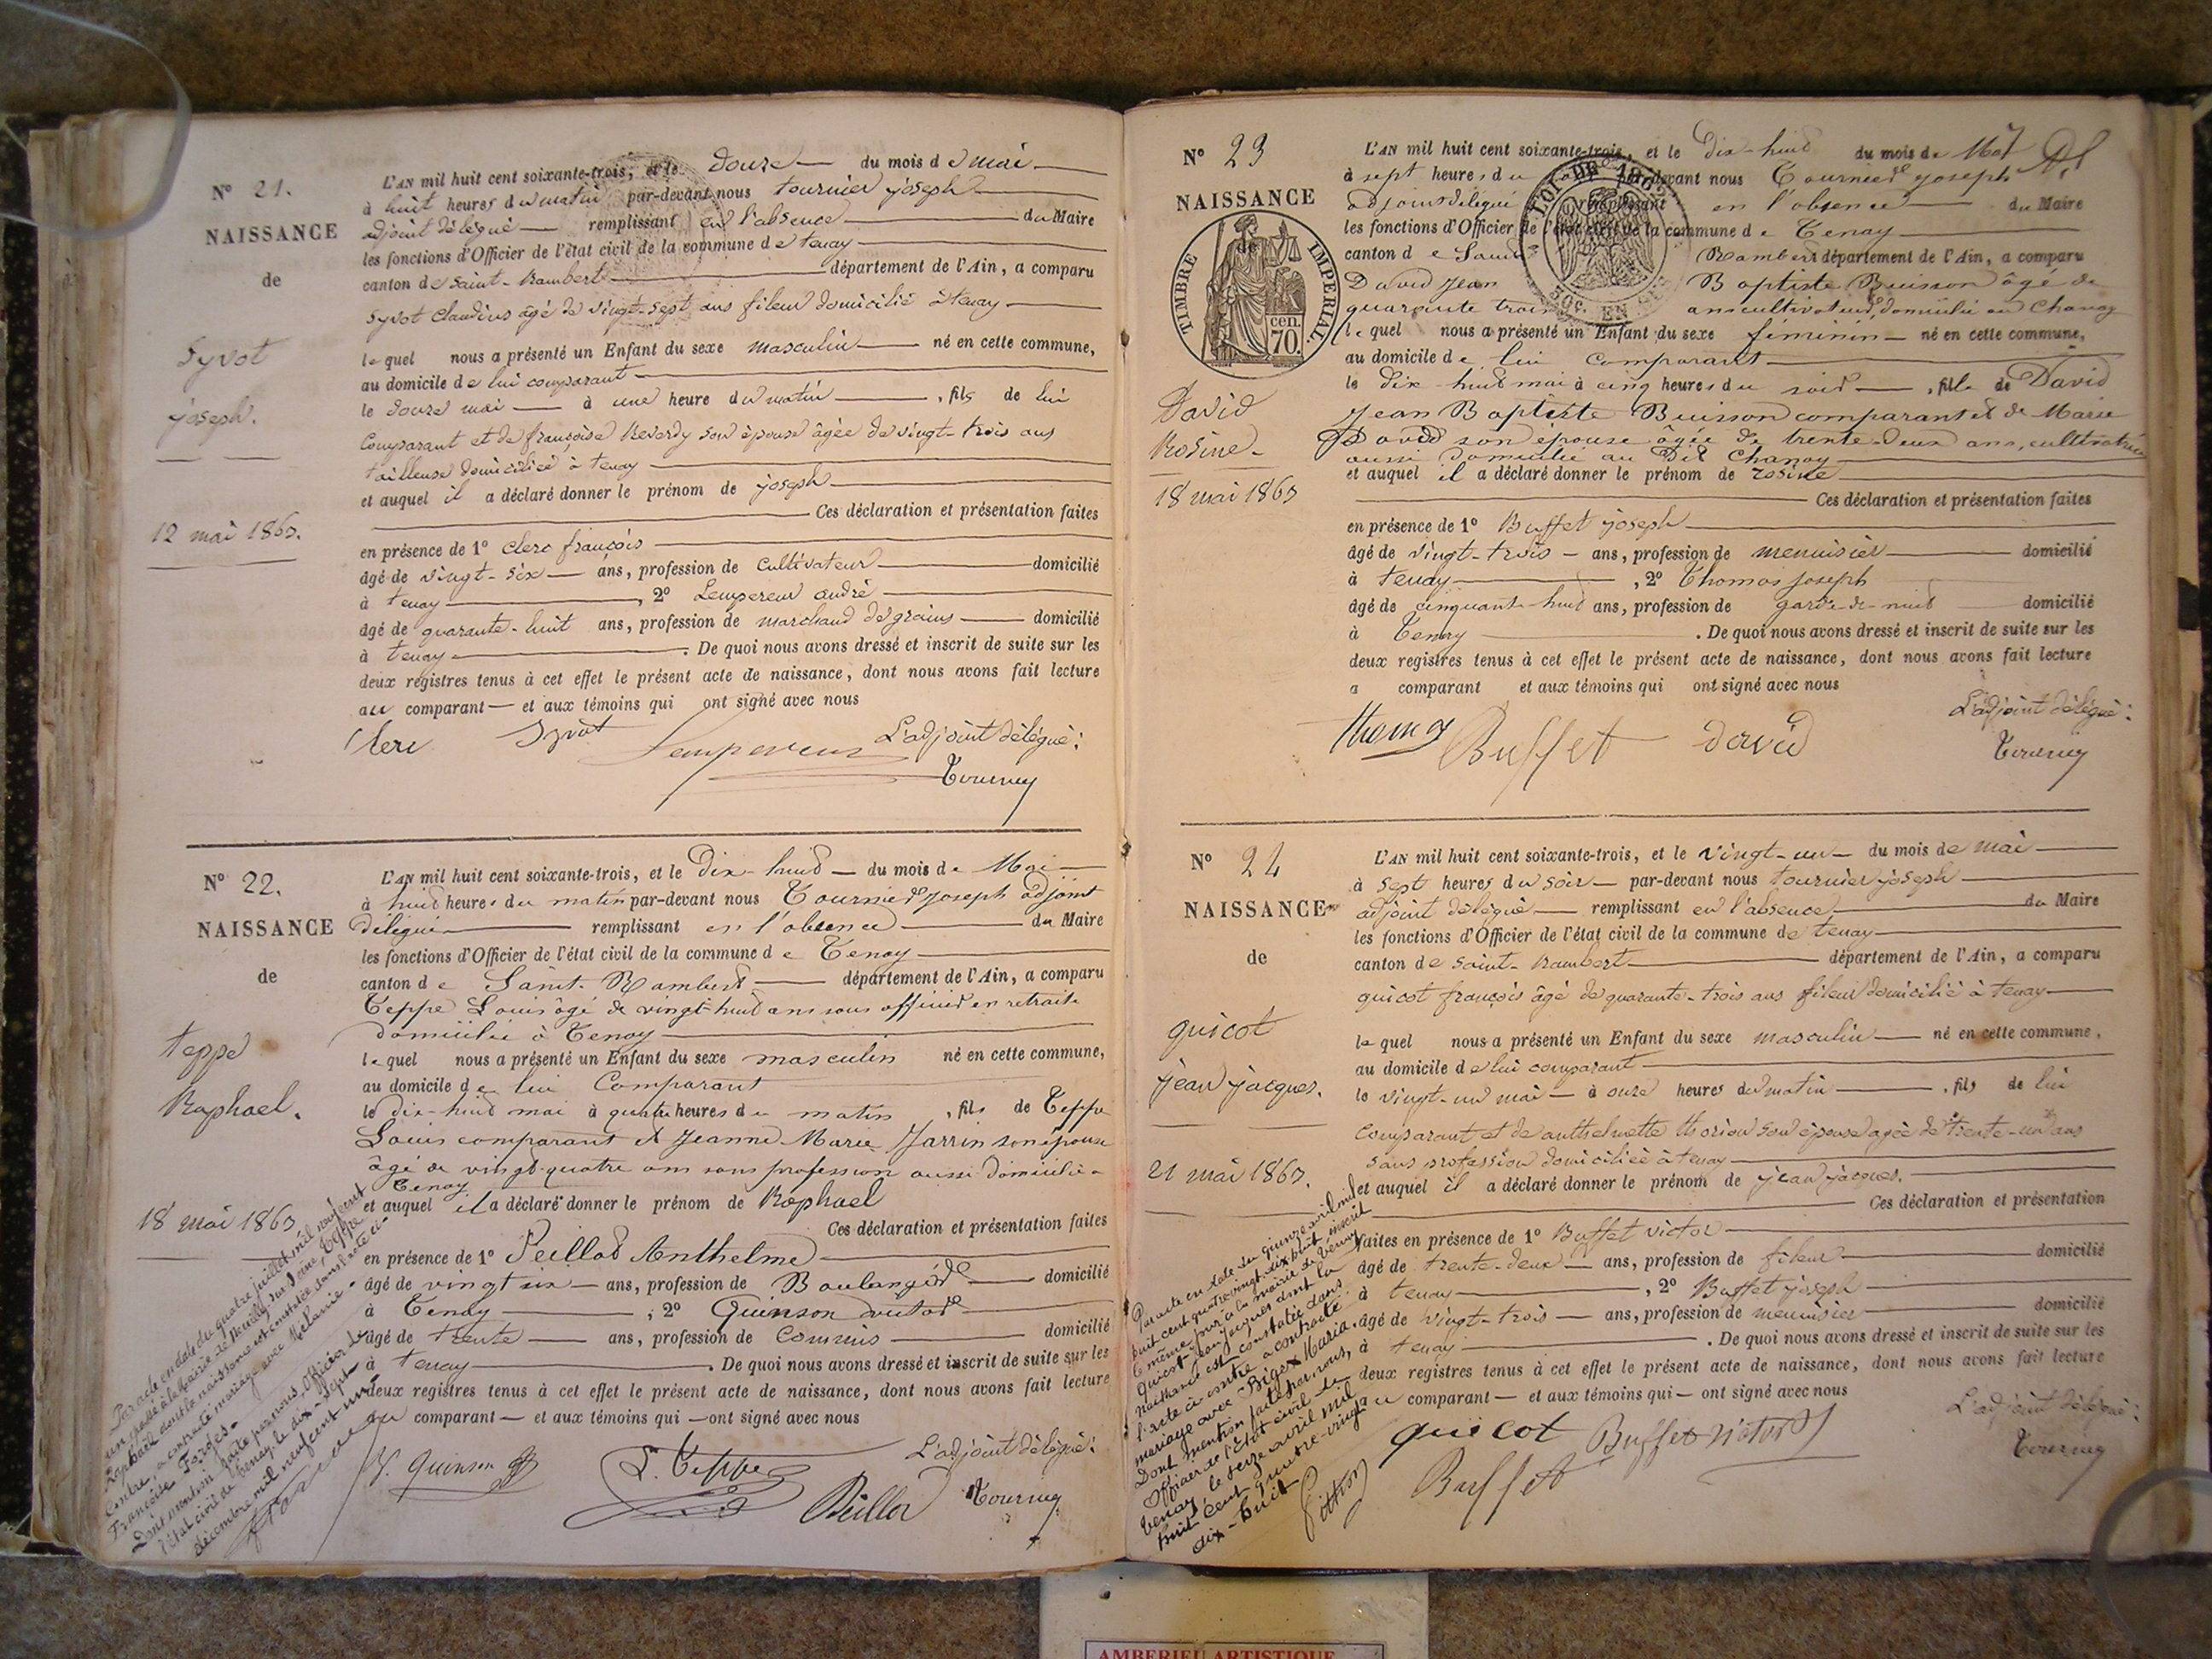 N° 21.
NAISSANCE
de
Syvot
joseph.
12 mai 1863.
L'AN mil huit cent soixante-trois, et le douze du mois de mai
à huit heures du matin par-devant nous tournier joseph
adjoint délégué remplissant en l'absence du Maire
les fonctions d'Officier de l'état civil de la commune de tenay
canton de saint-Rambert département de l'Ain, a comparu
Syvot claudius âgé de vingt-sept ans fileur domicilié à tenay
lequel nous a présenté un Enfant du sexe masculin né en cette commune,
au domicile de lui comparant
le douze mai à une heure du matin, fils de lui
comparant et de françoise Reverdy son épouse âgée de vingt-trois ans
tailleuse domiciliée à tenay
et auquel il a déclaré donner le prénom de joseph
Ces déclaration et présentation faites
en présence de 1° clerc françois
âgé de vingt-six ans, profession de cultivateur domicilié
à tenay, 2° Lempereur andré
âgé de quarante-huit ans, profession de marchand de grains domicilié
à tenay. De quoi nous avons dressé et inscrit de suite sur les
deux registres tenus à cet effet le présent acte de naissance, dont nous avons fait lecture
au comparant et aux témoins qui ont signé avec nous
Clerc Syvot Lempereur L'adjoint délégué:
Tournier
N° 22.
NAISSANCE
de
teppe
Raphael.
18 mai 1863
L'AN mil huit cent soixante-trois, et le Dix-huit du mois de Mai
à huit heures du matin par-devant nous Tournier Joseph adjoint
délégué remplissant en l'absence du Maire
les fonctions d'Officier de l'état civil de la commune de Tenay
canton de Saint-Rambert département de l'Ain, a comparu
Teppe Louis âgé de vingt-huit ans sous officier en retraite
domicilié à Tenay
lequel nous a présenté un Enfant du sexe masculin né en cette commune,
au domicile de lui Comparant
le dix-huit mai à quatre heures du matin, fils de Teppe
Louis comparant et Jeanne Marie Jarrin son épouse
âgé de vingt-quatre ans sans profession aussi domicilié a
Tenay
et auquel il a déclaré donner le prénom de Raphael
Ces déclaration et présentation faites
en présence de 1° Peillod Anthelme
âgé de vingt six ans, profession de Boulanger domicilié
à Tenay; 2° Quinson victor
âgé de trente ans, profession de commis domicilié
à tenay. De quoi nous avons dressé et inscrit de suite sur les
deux registres tenus à cet effet le présent acte de naissance, dont nous avons fait lecture
au comparant et aux témoins qui ont signé avec nous
V. Quinson L. Teppe Peillod L'adjoint délégué:
Tournier
Par acte en date du quatre juillet mil neuf cent
un passé à la Mairie de Neuilly-sur-Seine, Teppe
Raphaël dont la naissance est constatée dans l'acte ci-
contre, a contracté mariage avec Mélanie
Françoise Forges.
Dont mention faite par nous, Officier de
l'état civil de Tenay, le dix-sept
décembre mil neuf cent un
N° 23
NAISSANCE
de
TIMBRE IMPERIAL
70 cen.
David
Rosine
18 mai 1863
L'AN mil huit cent soixante-trois, et le dix-huit du mois de Mai
à sept heures du par-devant nous Tournier joseph
adjoint délégué remplissant en l'absence du Maire
les fonctions d'Officier de l'état civil de la commune de Tenay
canton de Saint Rambert département de l'Ain, a comparu
David Jean Baptiste Buisson âgé de
quarante trois ans cultivateur, domicilié au Chanay
lequel nous a présenté un Enfant du sexe féminin né en cette commune,
au domicile de lui comparant
le dix-huit mai à cinq heures du soir, fille de David
Jean Baptiste Buisson comparant et de Marie
David son épouse âgée de trente-deux ans, cultivatrice
aussi domicilié au Dit Chanay
et auquel il a déclaré donner le prénom de rosine
Ces déclaration et présentation faites
en présence de 1° Buffet joseph
âgé de vingt-trois ans, profession de menuisier domicilié
à tenay, 2° Thomas joseph
âgé de cinquante huit ans, profession de garde-de-nuit domicilié
à Tenay. De quoi nous avons dressé et inscrit de suite sur les
deux registres tenus à cet effet le présent acte de naissance, dont nous avons fait lecture
a comparant et aux témoins qui ont signé avec nous
Thomas Buffet david L'adjoint délégué:
Tournier
N° 24
NAISSANCE
de
quicot
jean jacques.
21 mai 1863.
L'AN mil huit cent soixante-trois, et le vingt-un du mois de mai
à sept heures du soir par-devant nous tournier joseph
adjoint délégué remplissant en l'absence du Maire
les fonctions d'Officier de l'état civil de la commune de tenay
canton de saint-Rambert département de l'Ain, a comparu
quicot françois âgé de quarante-trois ans fileur domicilié à tenay
lequel nous a présenté un Enfant du sexe masculin né en cette commune,
au domicile de lui comparant
le vingt-un mai à onze heures du matin, fils de lui
comparant et de anthelmette thorion son épouse agée de trente-un ans
sans profession domiciliée à tenay
et auquel il a déclaré donner le prénom de jean jacques.
Ces déclaration et présentation
faites en présence de 1° Buffet victor
âgé de trente-deux ans, profession de fileur domicilié
à tenay, 2° Buffet joseph
âgé de vingt-trois ans, profession de menuisier domicilié
à tenay. De quoi nous avons dressé et inscrit de suite sur les
deux registres tenus à cet effet le présent acte de naissance, dont nous avons fait lecture
au comparant et aux témoins qui ont signé avec nous
quicot Buffet victor L'adjoint délégué:
Buffet Tournier
Par acte en date du quinze avril mil
huit cent quatre vingt dix huit, inscrit
le même jour à la mairie de Tenay
Quicot Jean Jacques dont la
naissance est constatée dans
l'acte ci-contre a contracté
mariage avec Bigex Maria.
Dont mention faite par nous,
Officier de l'état civil de
Tenay, le seize avril mil
huit cent quatre-vingt
dix-huit
AMBERIEU ARTISTIQUE